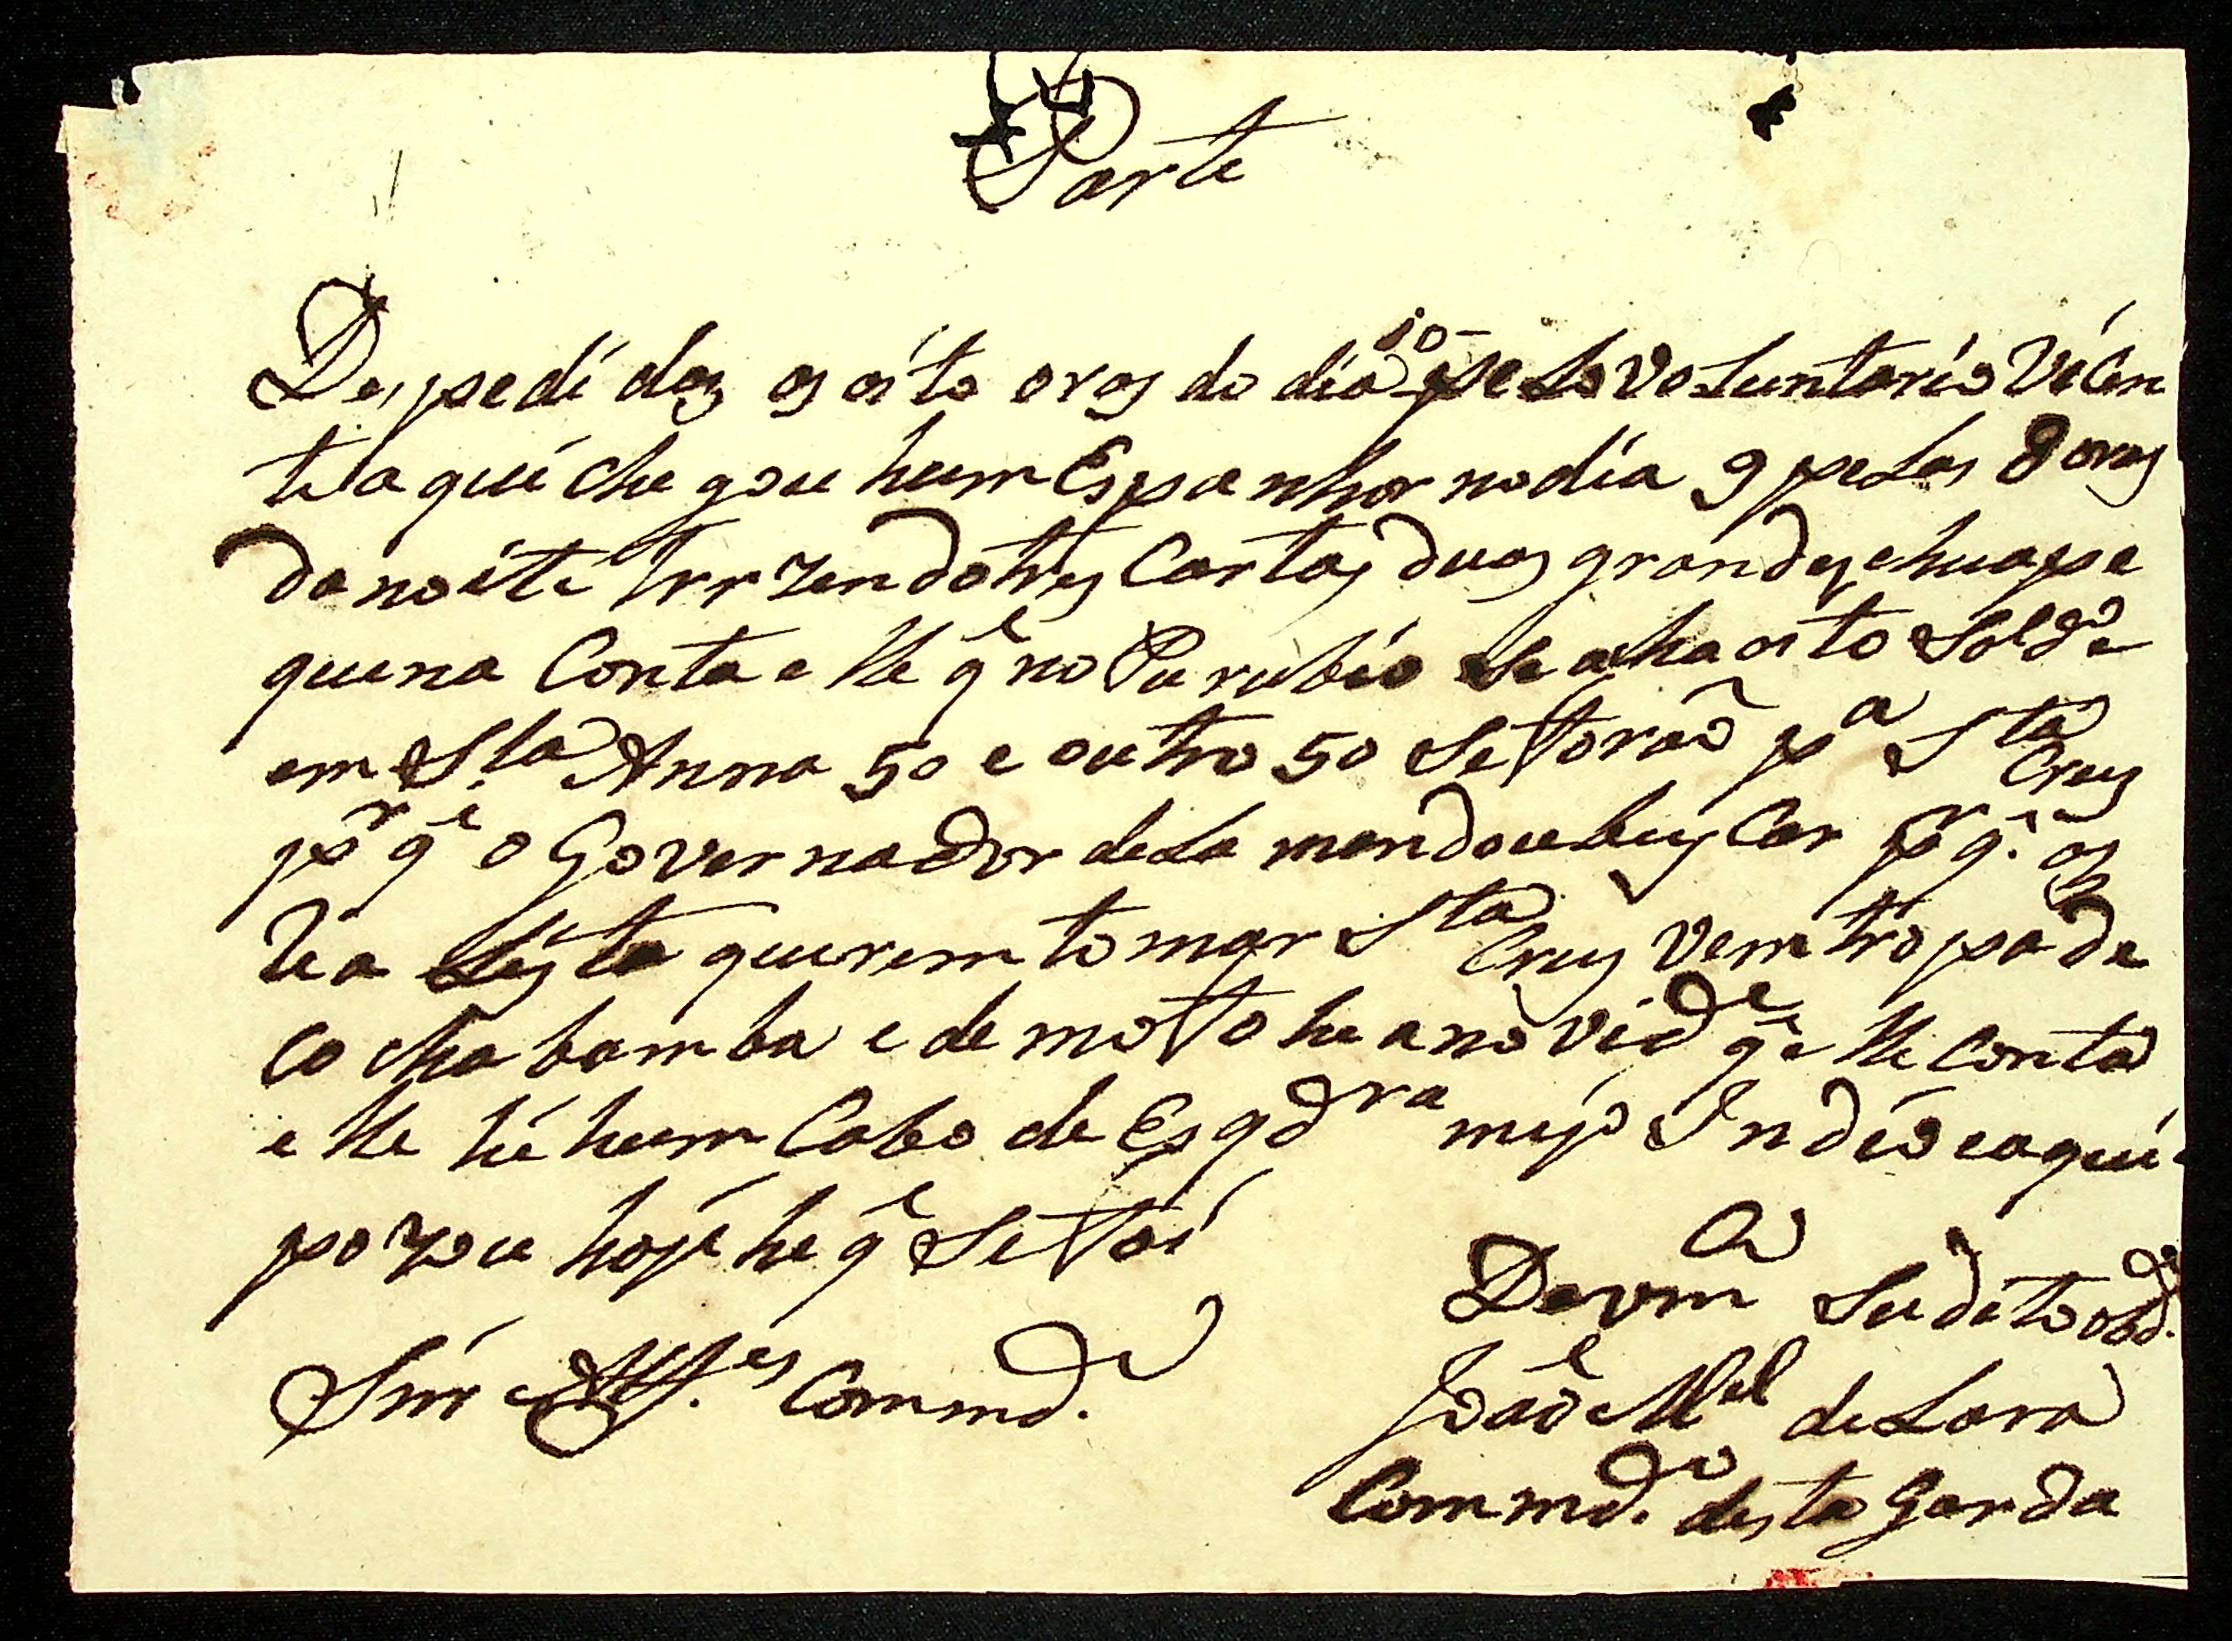 Parte
Despedida as oito oras do dia 10 pelo Voluntario Vicen
te aqui chegou hum Espanhor no dia 9 pelas 8 oras
da noite trrzendo tres Cartas duas grandes e hua pe
quena Conta elle q̃ no Purubio se acha oito Sold.o e
em S.ta Anna 50 e outro 50 se torão p.a S.ta Cruz
p.r q.e o Governador de La mandou buscar p.r q.e os
lia Lista querem tomar S.ta Cruz vem tropa de
Cochabamba e de moto he a novid.e q.e elle Conta
elle hé hum Cabo de Esqd.ra mso Indio e aqui
pozou hoje he q̃ se foi
De Vm.ce Sudito obd.o
Snr Alf.es Commd.e
João M.el de Lara
Commd.e desta Garda